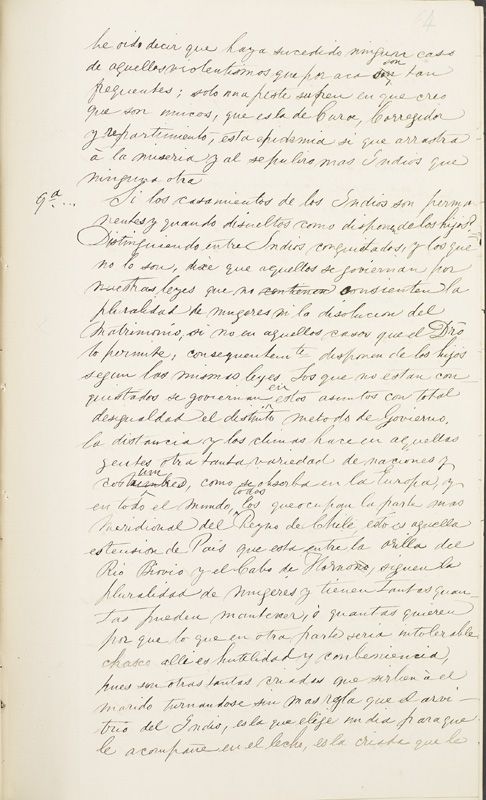 4
he oido decir que haya sucedido ningun caso
de aquellos violentismos que por aca son tan
frequentes; solo una peste sufren en que creo
que son mucos, que es la de Cura, Corregidor
y repartimento, esta epidemia si que arrastra
á la miseria y al sepulcro mas Indios que
ninguna otra
9ª... Si los casamientos de los Indios son perma-
nentes y quando disueltos como disponen de los hijos?
Distinguiendo entre Indios conquistados, y los que
no lo son, dixe que aquellos se goviernan por
nuestras leyes que no consienten la
pluralidad de mugeres ni la disolucion del
Matrimonio, si no en aquellos casos que el Dro
lo permite, consequentemte disponen de los hijos
segun las mismas leyes. Los que no estan con-
quistados se goviernan en estos asuntos con total
desigualdad el distinto metodo de Govierno,
la distancia y los climas hace en aquellas
gentes otra tanta variedad de naciones y
costumbres, como se observa en la Europa, y
en todo el mundo, todos los que ocupan la parte mas
meridional del Reyno de Chile, esto es aquella
estension de Pais que esta entre la orilla del
Rio Biovio y el Cabo de Hornono, siguen la
pluralidad de mugeres y tienen tantas quan-
tas pueden mantener, ó quantas quieren
por que lo que en otra parte seria intolerable
chasco alli es hutilidad y conbeniencia,
pues son otras tantas criadas que sirban á el
marido turnandose sin mas regla que el arvi-
trio del Indio, es la que elige un dia para que
le acompañe en el leche, es la criada que le